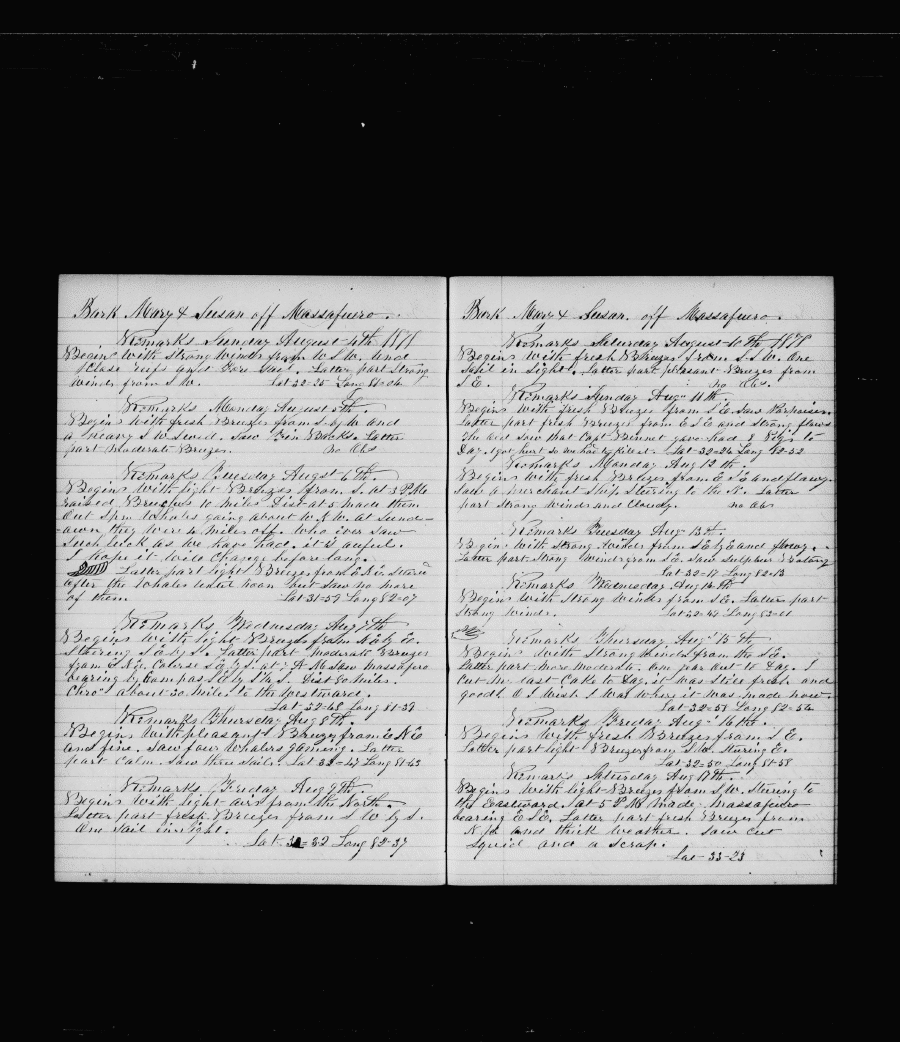 Bark Mary & Susan off Massafuero.
Remarks Sunday August 4th 1878
Begins with strong winds from W S W. and
Close reefs and Fore Sail. Latter part Strong
winds from S W. Lat 32-25 Long
Remarks Monday August 5th.
Begins with fresh Breezes from S. by W and
a heavy S W Swell. Saw Fin Backs. Latter
part moderate Breezes. No Obs
Remarks Tuesday Augst 6th
Begins with light Breezes from S. at 3 P.M.
raised Breaches 10 miles Dist at 5 made them
Out Spm Whales going about W. N W. at Sund-
-down they were 4 miles off. Who ever Saw
Such luck as we have had. it is awful.
I hope it will Change before long.
Latter part light Breezes from E N E. Steard
after the Whales untill noon but Saw no more
of them. Lat 31-59 Long 82-07
Remarks Wednesday Aug 7th
Begins with light Breezes from N E by E.
Steering S E by S. Latter part moderate Breezes
from E N E. Course S E by S. at 7 A M Saw Massafuero
bearing by Compass S by S. Dist 40 Miles.
Chro about 30 Miles to the Westward.
Lat 32-48 Long 81-39
Remarks Thursday Aug 8th.
Begins with pleasant Breezes from E N E
and fine. Saw four Whalers Gaming. Latter
part Calm. Saw three Sails. Lat 32-47 Long 81-43
Remarks Friday Aug 9th.
Begins with light airs from the North.
Latter part fresh Breezes from S W by S.
One Sail in sight.
Lat 32-52 Long 82-37
Bark Mary & Susan. off Massafuero.
Remarks Saturday August 10th 1878
Begins with fresh Breezes from S. S W. One
Sail in Sight. Latter part pleasant Breezes from
S E. No Obs.
Remarks Sunday Aug 11th.
Begins with fresh Breezes from S E. Saw Porpoises.
Latter part fresh Breezes from E S E and Strong flaws
The old Sow that Capt Bennet gave had 8 Pigs to
Day. got hurt so we had to kill it. Lat 32-24 Long 82-52
Remarks Monday Aug 12th.
Begins with fresh Breezes from E S E and flawy.
Saw a Merchant Ship Steering to the N. Latter
part Strong winds and Cloudy. No Obs
Remarks Tuesday Aug 13th.
Begins with Strong Winds from S E by E and flawy.
Latter part Strong Winds from S E. Saw Sulphur Bottoms
Lat 32-17 Long 82-13
Remarks Wednesday Aug 14th
Begins with Strong winds from S E. Latter part
Strong Winds. Lat 32-42 Long
Remarks Thursday Aug 15th
Begins with Strong winds from the S E.
Latter part more moderate. One year out to Day. I
Cut my last Cake to Day. it was Still fresh and
good. O I Wish I was where it was made now.
Lat 32-58 Long 82-54
Remarks Friday Aug 16th.
Begins with fresh Breezes from S E.
Latter part light Breezes from S W. Stering E.
Lat 32-50 Long 81-58
Remarks Saturday Aug 17th.
Begins with light Breezes from S W. Stering to
the Eastward. at 5 P M. Made Massafuero
bearing E S E. Latter part fresh Breezes from
N. and thick Weather. Saw Cut
Squid and a Scrap.
Lat 33-23